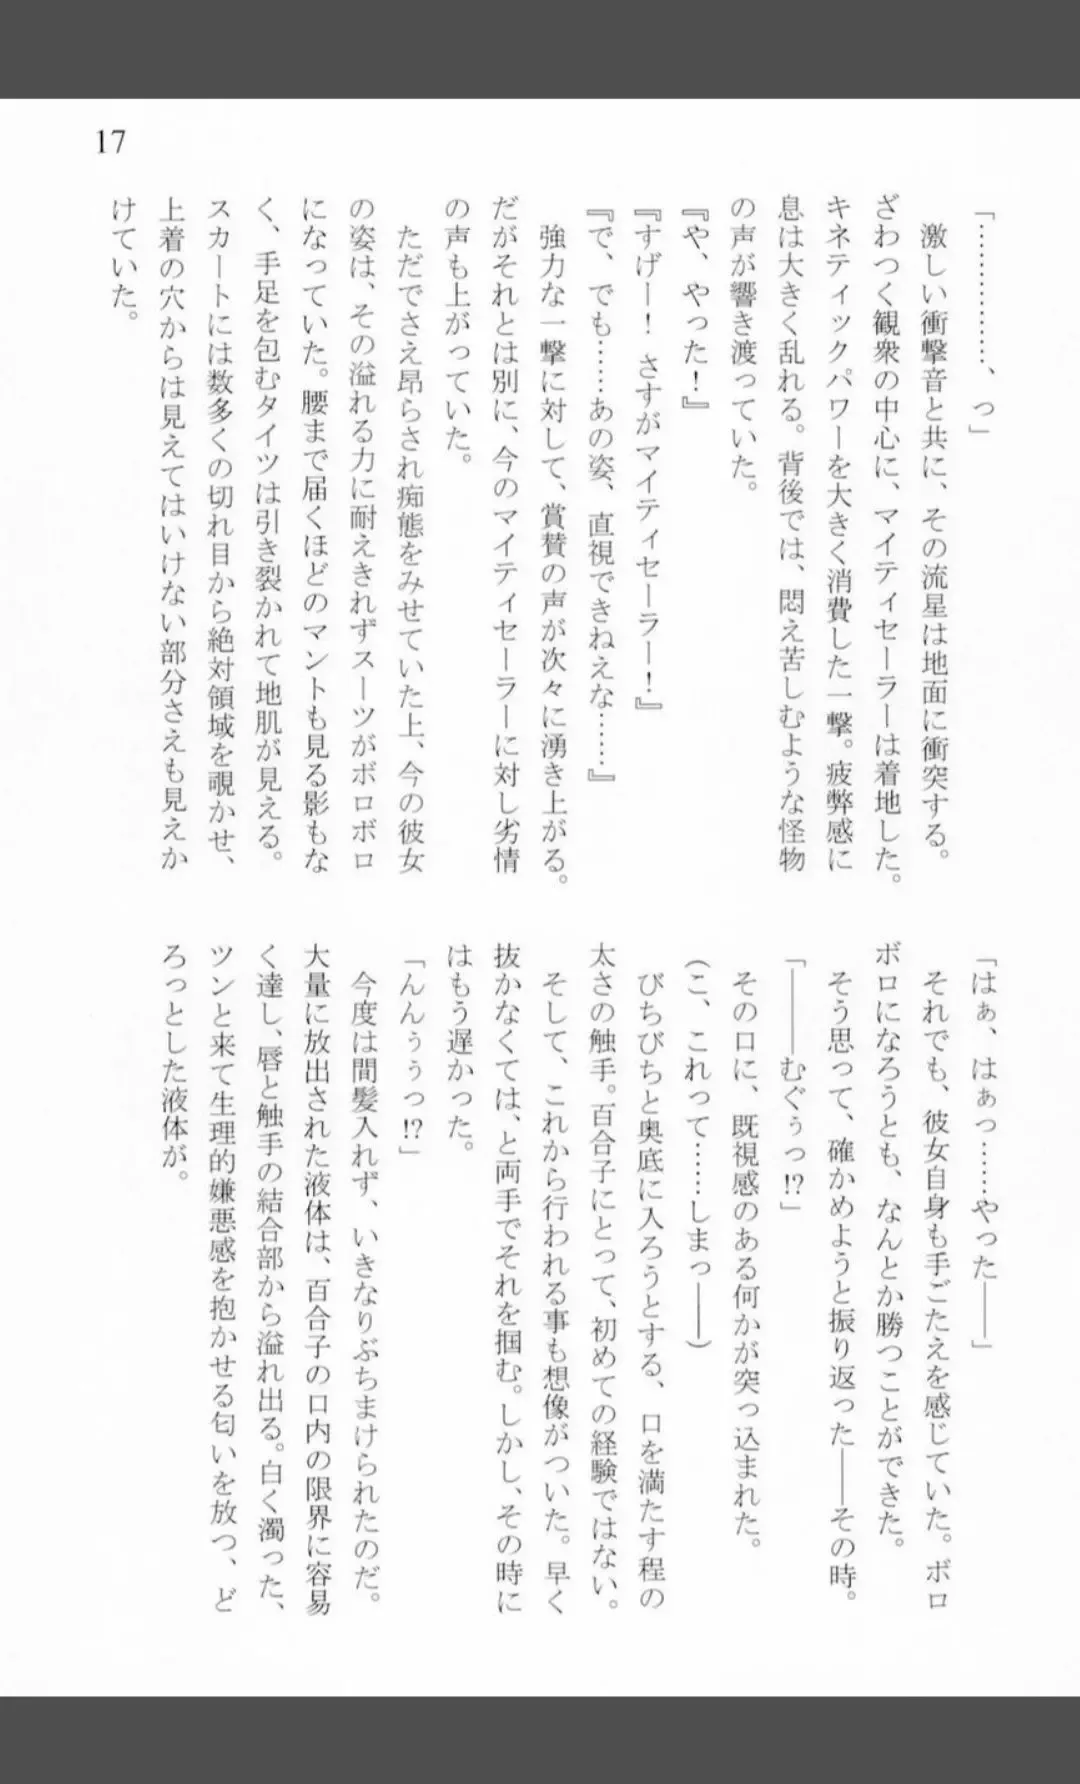 17
「…………、っ」
激しい衝撃音と共に、その流星は地面に衝突する。
ざわつく観衆の中心に、マイティセーラーは着地した。
キネティックパワーを大きく消費した一撃。疲弊感に
息は大きく乱れる。背後では、悶え苦しむような怪物
の声が響き渡っていた。
『や、やった！』
『すげー！　さすがマイティセーラー！』
『で、でも……あの姿、直視できねえな……』
強力な一撃に対して、賞賛の声が次々に湧き上がる。
だがそれとは別に、今のマイティセーラーに対し劣情
の声も上がっていた。
ただでさえ昂らされ痴態をみせていた上、今の彼女
の姿は、その溢れる力に耐えきれずスーツがボロボロ
になっていた。腰まで届くほどのマントも見る影もな
く、手足を包むタイツは引き裂かれて地肌が見える。
スカートには数多くの切れ目から絶対領域を覗かせ、
上着の穴からは見えてはいけない部分さえも見えか
けていた。
「はぁ、はぁっ……やった――」
それでも、彼女自身も手ごたえを感じていた。ボロ
ボロになろうとも、なんとか勝つことができた。
そう思って、確かめようと振り返った――その時。
「――むぐぅっ!?」
その口に、既視感のある何かが突っ込まれた。
（こ、これって……しまっ――）
びちびちと奥底に入ろうとする、口を満たす程の
太さの触手。百合子にとって、初めての経験ではない。
そして、これから行われる事も想像がついた。早く
抜かなくては、と両手でそれを掴む。しかし、その時に
はもう遅かった。
「んんぅぅっ!?」
今度は間髪入れず、いきなりぶちまけられたのだ。
大量に放出された液体は、百合子の口内の限界に容易
く達し、唇と触手の結合部から溢れ出る。白く濁った、
ツンと来て生理的嫌悪感を抱かせる匂いを放つ、ど
ろっとした液体が。